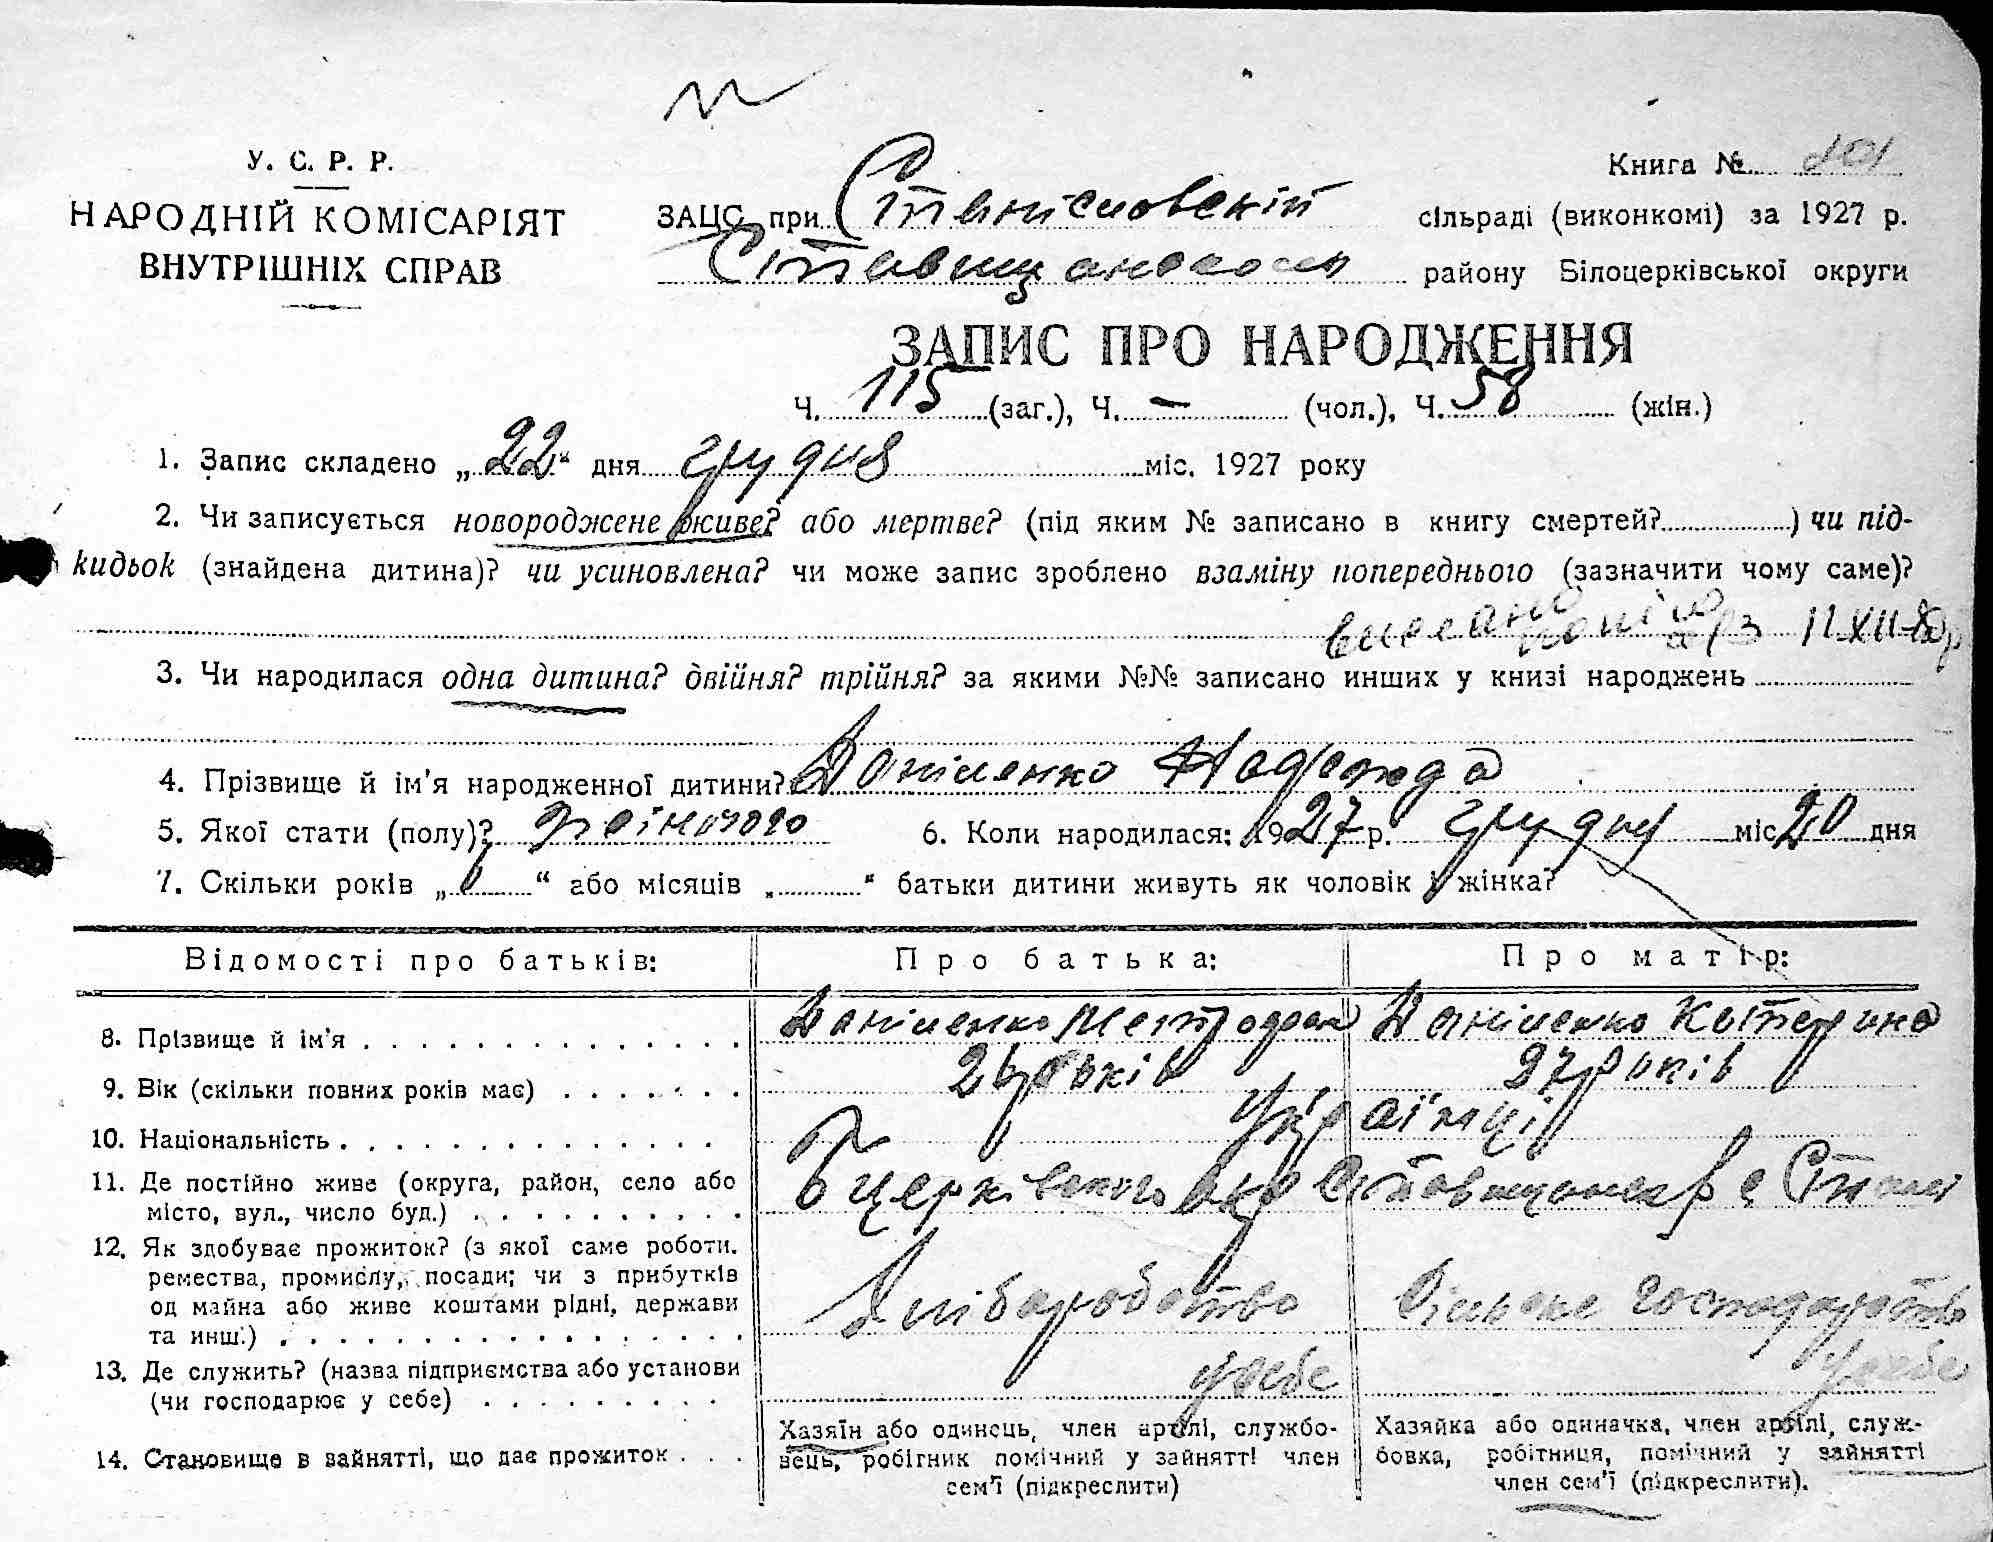 У. С. Р. Р.
НАРОДНІЙ КОМІСАРІЯТ
ВНУТРІШНІХ СПРАВ
Книга №
ЗАЦС при Станіславскій сільраді (виконкомі) за 1927 р.
Ставищанського району Білоцерківської округи
ЗАПИС ПРО НАРОДЖЕННЯ
Ч. 115 (заг.), Ч. — (чол.), Ч. 58 (жін.)
1. Запис складено „22“ дня грудня міс. 1927 року
2. Чи записується новороджене живе? або мертве? (під яким № записано в книгу смертей?) чи під-
кидьок (знайдена дитина)? чи усиновлена? чи може запис зроблено взаміну попереднього (зазначити чому саме)?
3. Чи народилася одна дитина? двійня? трійня? за якими №№ записано инших у книзі народжень
4. Прізвище й ім'я народженної дитини? Даніленко Надежда
5. Якої стати (полу)? жіночого 6. Коли народилася: 1927 р. грудня міс 20 дня
7. Скільки років „ “ або місяців „ “ батьки дитини живуть як чоловік і жінка?
Відомості про батьків: Про батька: Про матір:
8. Прізвище й ім'я Даніленко Метрофан Даніленко Катерина
9. Вік (скільки повних років має) років 27 років
10. Національність Українці
11. Де постійно живе (округа, район, село або
місто, вул., число буд.) Бцерківського окр Ставищанськ р с
12. Як здобуває прожиток? (з якої саме роботи.
ремества, промислу, посади; чи з прибутків
од майна або живе коштами рідні, держави
та инш.) Хліборобство Сільське господарство
13. Де служить? (назва підприємства або установи
(чи господарює у себе) у себе у себе
14. Становище в зайнятті, що дає прожиток
Хазяїн або одинець, член артілі, службо-
вець, робітник помічний у зайнятті член
сем'ї (підкреслити)
Хазяйка або одиначка, член артілі, служ-
бовка, робітниця, помічний у зайнятті
член сем'ї (підкреслити).